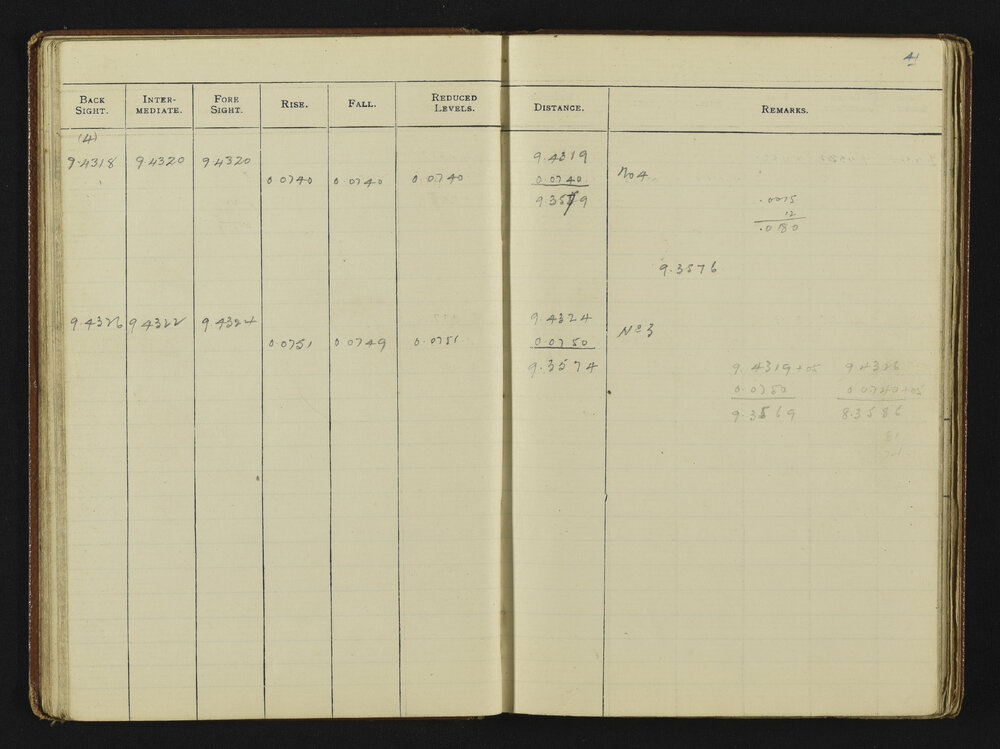 41
BACK SIGHT. INTER-MEDIATE. FORE SIGHT. RISE. FALL. REDUCED LEVELS. DISTANCE. REMARKS.
(4)
9.4318 9.4320 9.4320 9.4319
0.0740 0.0740 0.0740 0.0740 No 4
9.3579
.0015
12
.0180
9.3576
9.4326 9.4322 9.4324 9.4324
0.0751 0.0749 0.0751 0.0750 No 3
9.3574
9.4319+05 9.4326
0.0750 0.0740+05
9.3569 8.3586
18